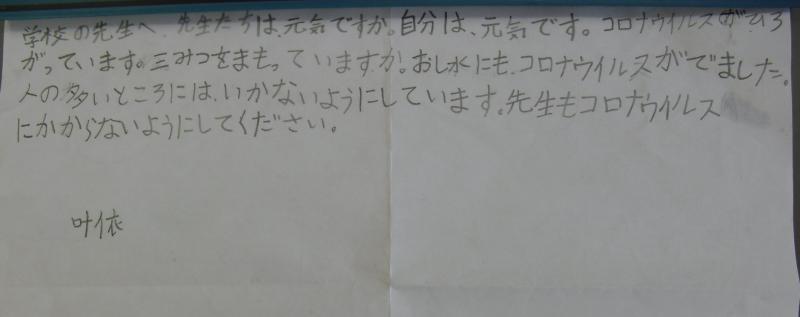 学校の先生へ 先生たちは、元気ですか。自分は、元気です。コロナウイルスがひろ
がっています。三みつをまもっていますか。おし水にも、コロナウイルスがでました。
人の多いところには、いかないようにしています。先生もコロナウイルス
にかからないようにしてください。
叶依